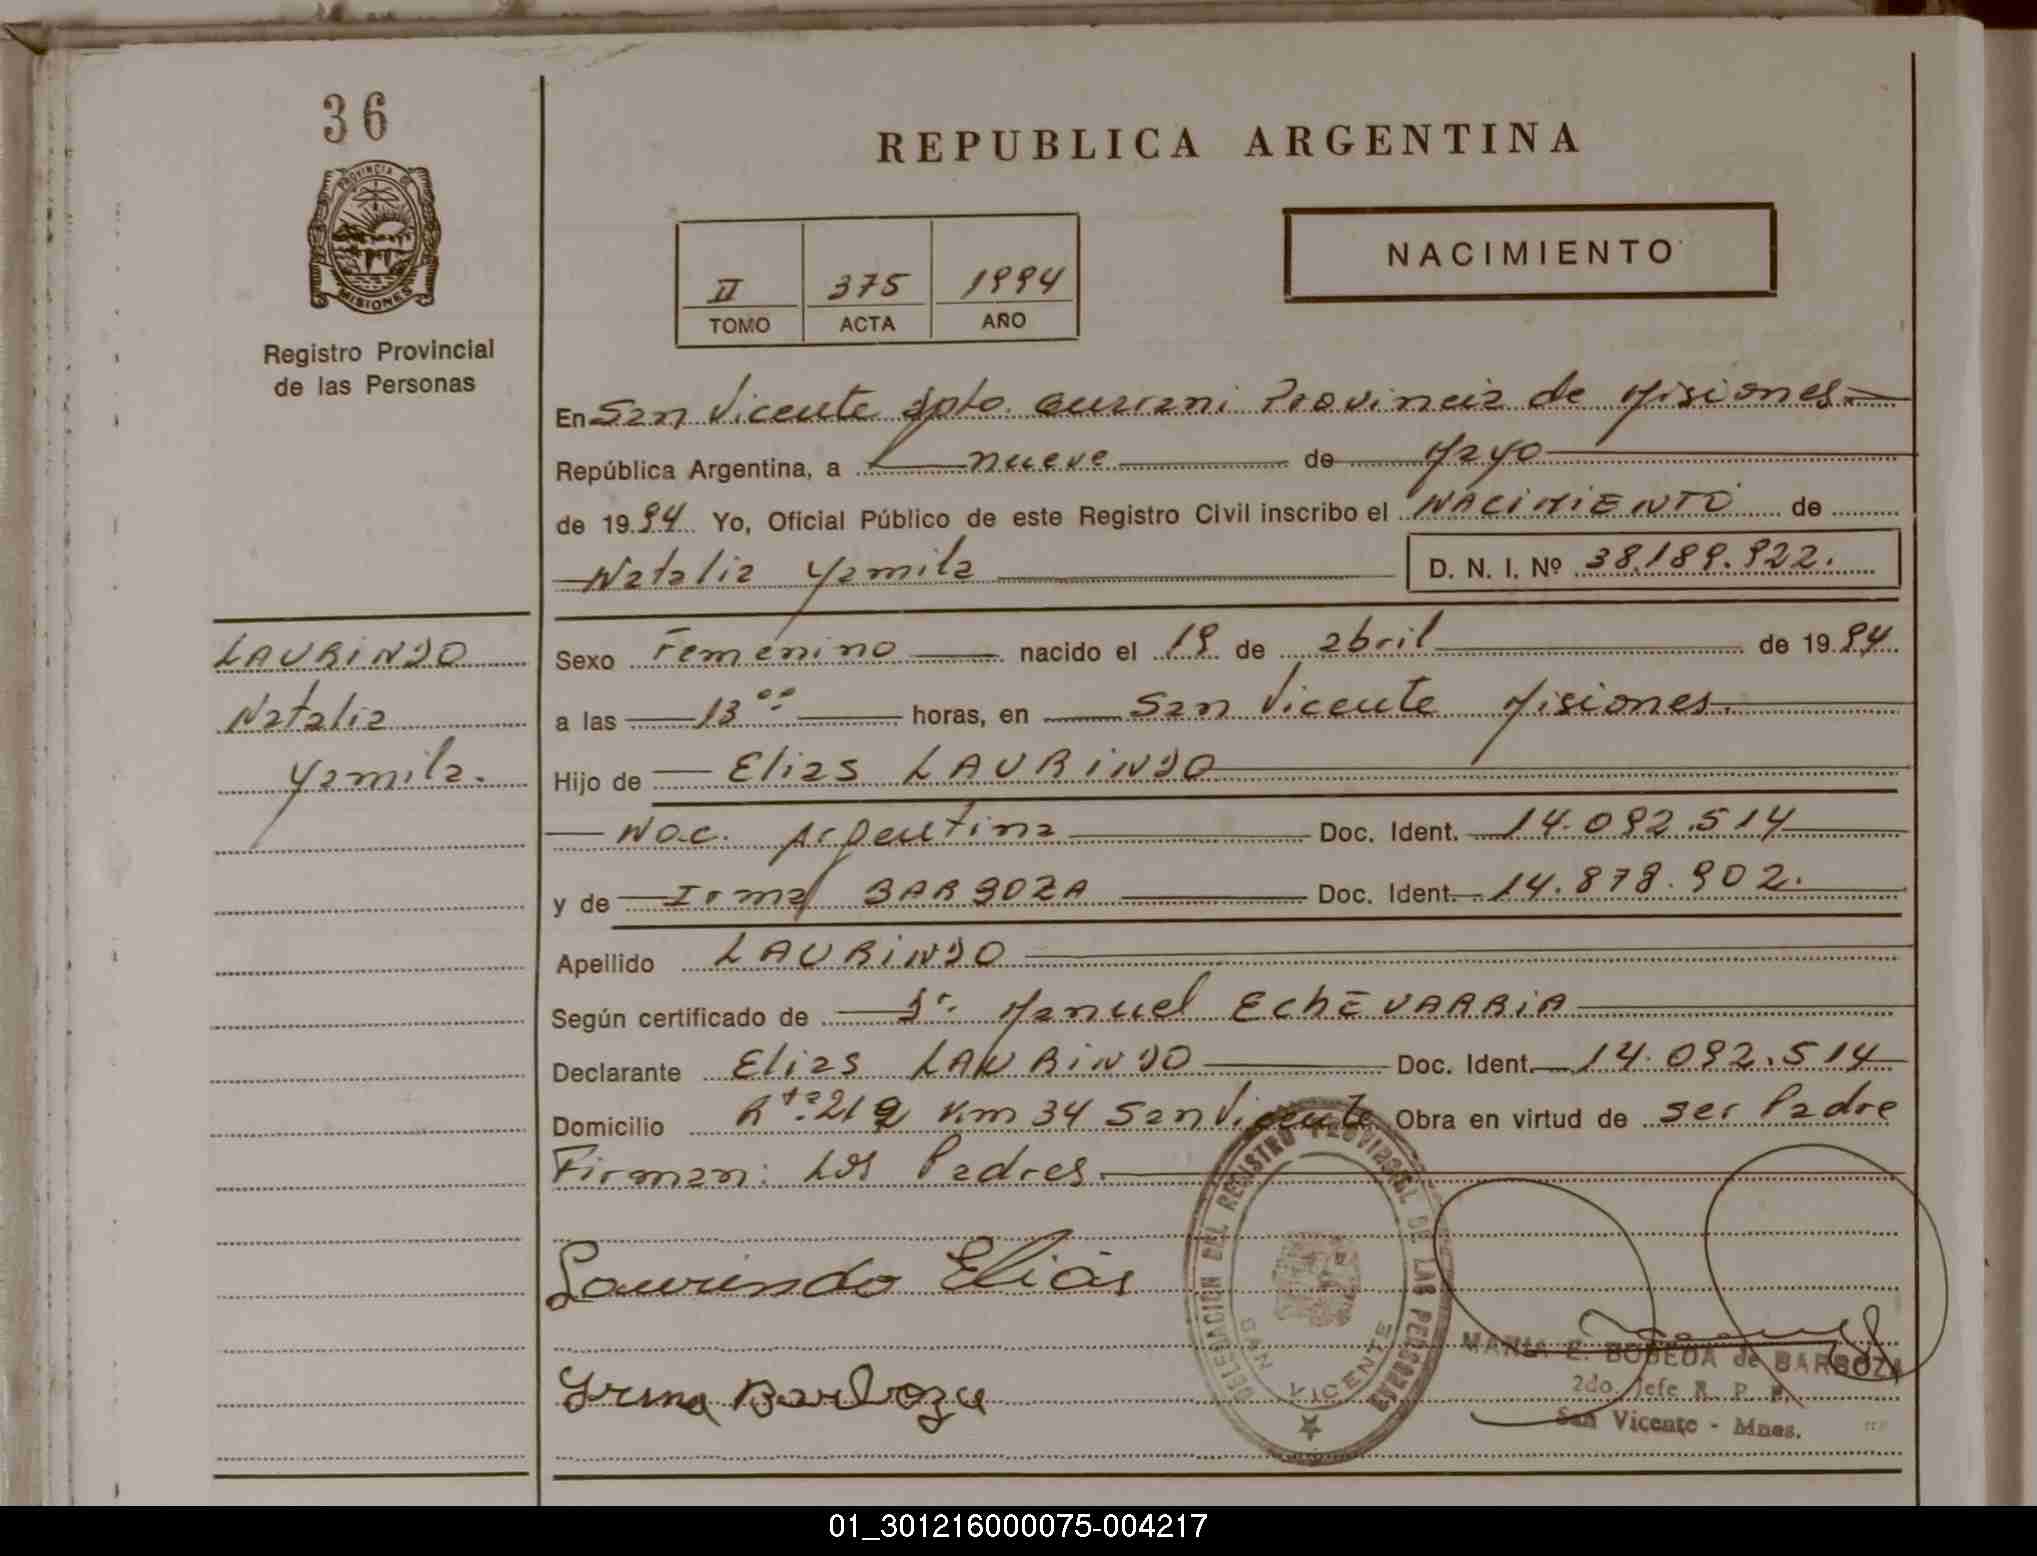 36
PROVINCIA DE
MISIONES
Registro Provincial
de las Personas
REPUBLICA ARGENTINA
NACIMIENTO
II 375 1994
TOMO ACTA AÑO
En San Vicente Dpto. Guarani Provincia de Misiones.
República Argentina, a nueve de Mayo
de 1994 Yo, Oficial Público de este Registro Civil inscribo el NACIMIENTO de
Natalia Yamila D. N. I. Nº 38.189.922.
LAURINDO
Natalia
Yamila.
Sexo Femenino nacido el 19 de abril de 1994
a las 13 00 horas, en San Vicente Misiones.
Hijo de Elias LAURINDO
Nac. Argentina Doc. Ident. 14.092.514
y de Irma BARBOZA Doc. Ident. 14.878.902.
Apellido LAURINDO
Según certificado de Dr. Manuel EChEVARRIA
Declarante Elias LAURINDO Doc. Ident. 14.092.514
Domicilio Rta. 212 Km 34 San Vicente Obra en virtud de ser Padre
Firman: Los Padres.
Laurindo Eliás
Irma Barboza
DELEGACION DEL REGISTRO PROVINCIAL DE LAS PERSONAS
SAN VICENTE
MARIA E. BOBEDA de BARBOZA
2do. Jefe R. P. P.
San Vicente - Mnes.
01_301216000075-004217